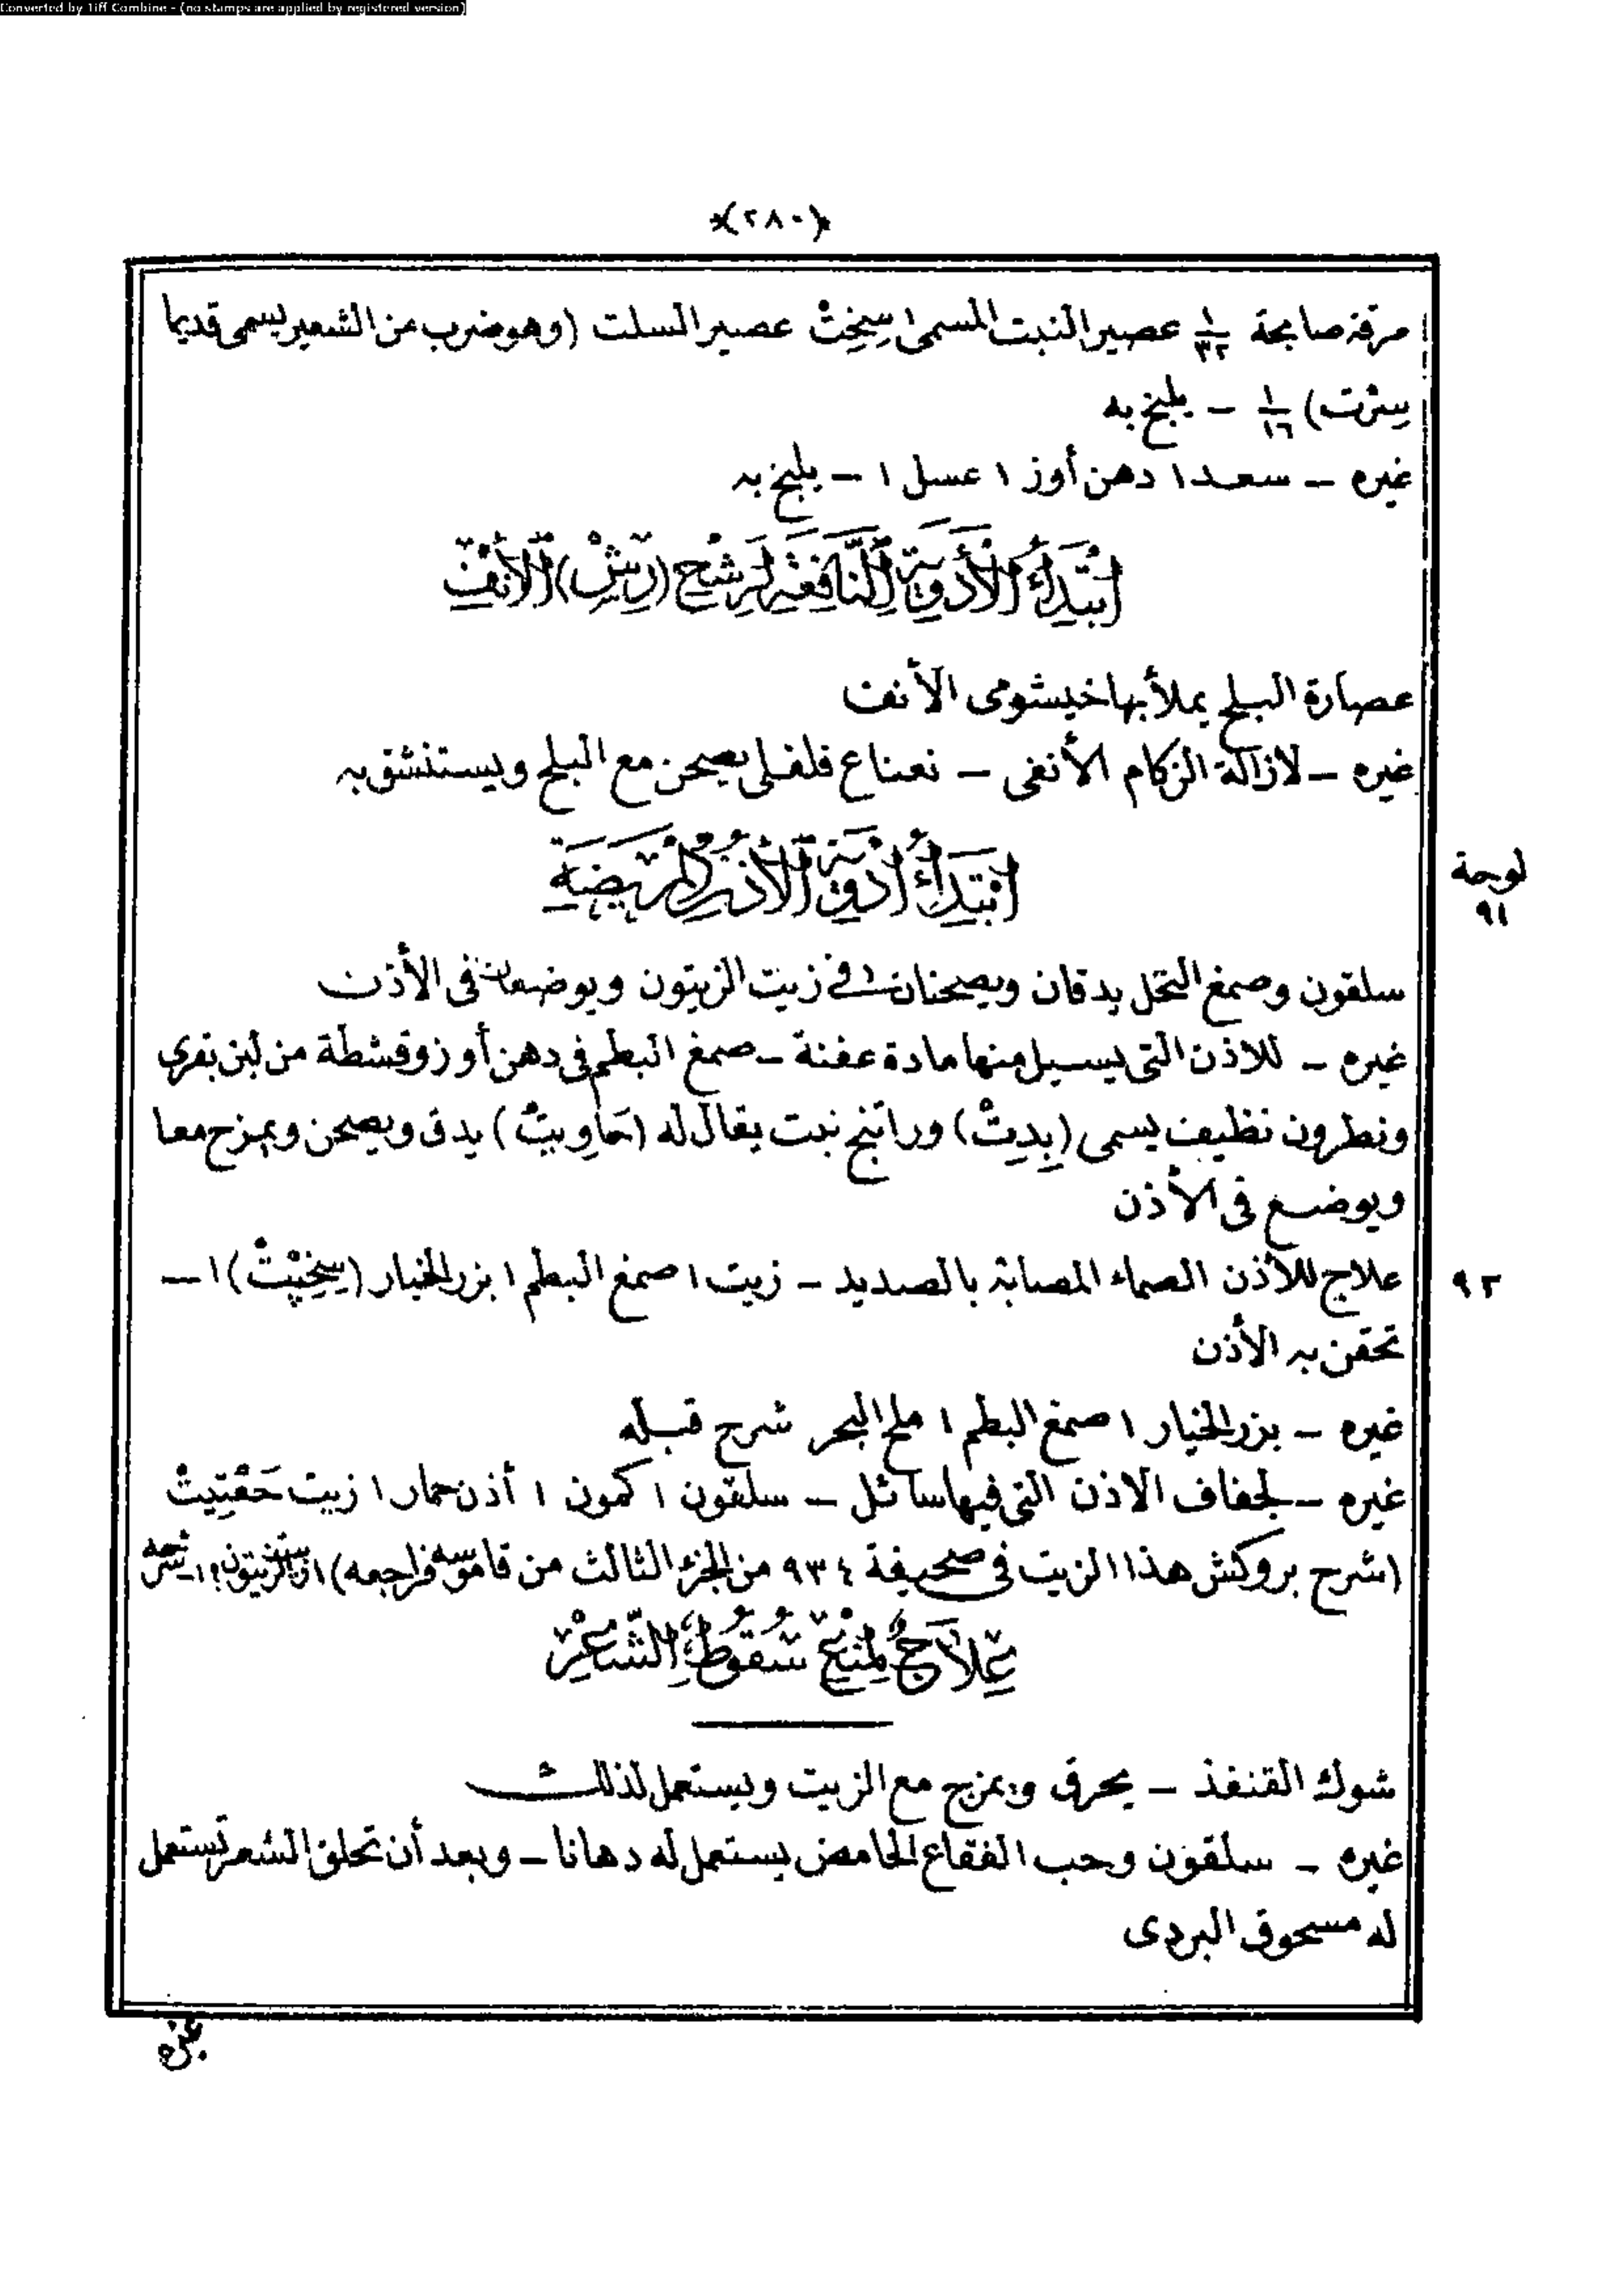 Converted by Tiff Combine - (no stamps are applied by registered version)
*(٢٨٠)*
مرقة صابحة ١/٣٢ عصير النبت المسمى سِخِتْ عصير السلت (وهو ضرب من الشعير يسمى قديما
سِرْت) ١/١٦ – يلبخ به
غيره – سعد ١ دهن أوز ١ عسل ١ – يلبخ به
ابْتِدَاءُ الْأَدْوِيَةِ النَّافِعَةِ لِرَشْحِ (رِشْ) الْأَنْفِ
عصارة البلح يملأ بها خيشومى الأنف
غيره – لازالة الزكام الأنفى – نعناع فلفلى يصحن مع البلح ويستنشق به
ابْتِدَاءُ أَدْوِيَةِ الْأُذُنِ الْمَرِيضَةِ
لوحة
٩١
سلقون وصمغ النحل يدقان ويصحنان فى زيت الزيتون ويوضعان فى الأذن
غيره – للاذن التى يسيل منها مادة عفنة – صمغ البطم فى دهن أوز وقشطة من لبن بقرى
ونطرون نظيف يسمى (بِدِتْ) وراتنج نبت يقال له (حَاوِيتْ) يدق ويصحن ويمزج معا
ويوضع فى الأذن
علاج للأذن الصماء المصابة بالصديد – زيت ١ صمغ البطم ١ بزر الخيار (سِخِپِتْ) ١ –
٩٢
تحقن به الأذن
غيره – بزر الخيار ١ صمغ البطم ١ ملح البحر شرح قبله
غيره – لجفاف الاذن التى فيها سائل – سلقون ١ كمون ١ أذن حمار ١ زيت حَقْتِيتْ
(شرح بروكش هذا الزيت فى صحيفة ٩٣٤ من الجزء الثالث من قاموسه فراجعه) ١ زيت الزيتون ١ – شرحه
عِلَاجٌ لِمَنْعِ سُقُوطِ الشَّعْرِ
شوك القنفذ – يحرق ويمزج مع الزيت ويستعمل لذلك
غيره – سلقون وحب الفقاع الحامض يستعمل له دهانا – وبعد أن تحلق الشعر تستعمل
له مسحوق البردى
غيره